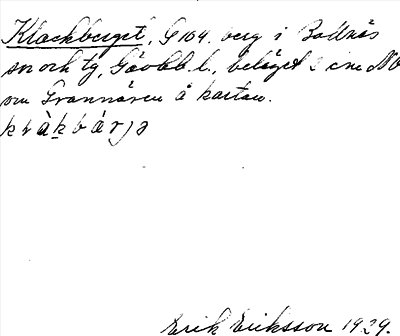 Klackberget, G 104. berg i Bollnäs
sn och tg, Gävlebl., beläget 2 cm NO
om Grannären å kartan.
klàkbárjə
Erik Eriksson 1929.